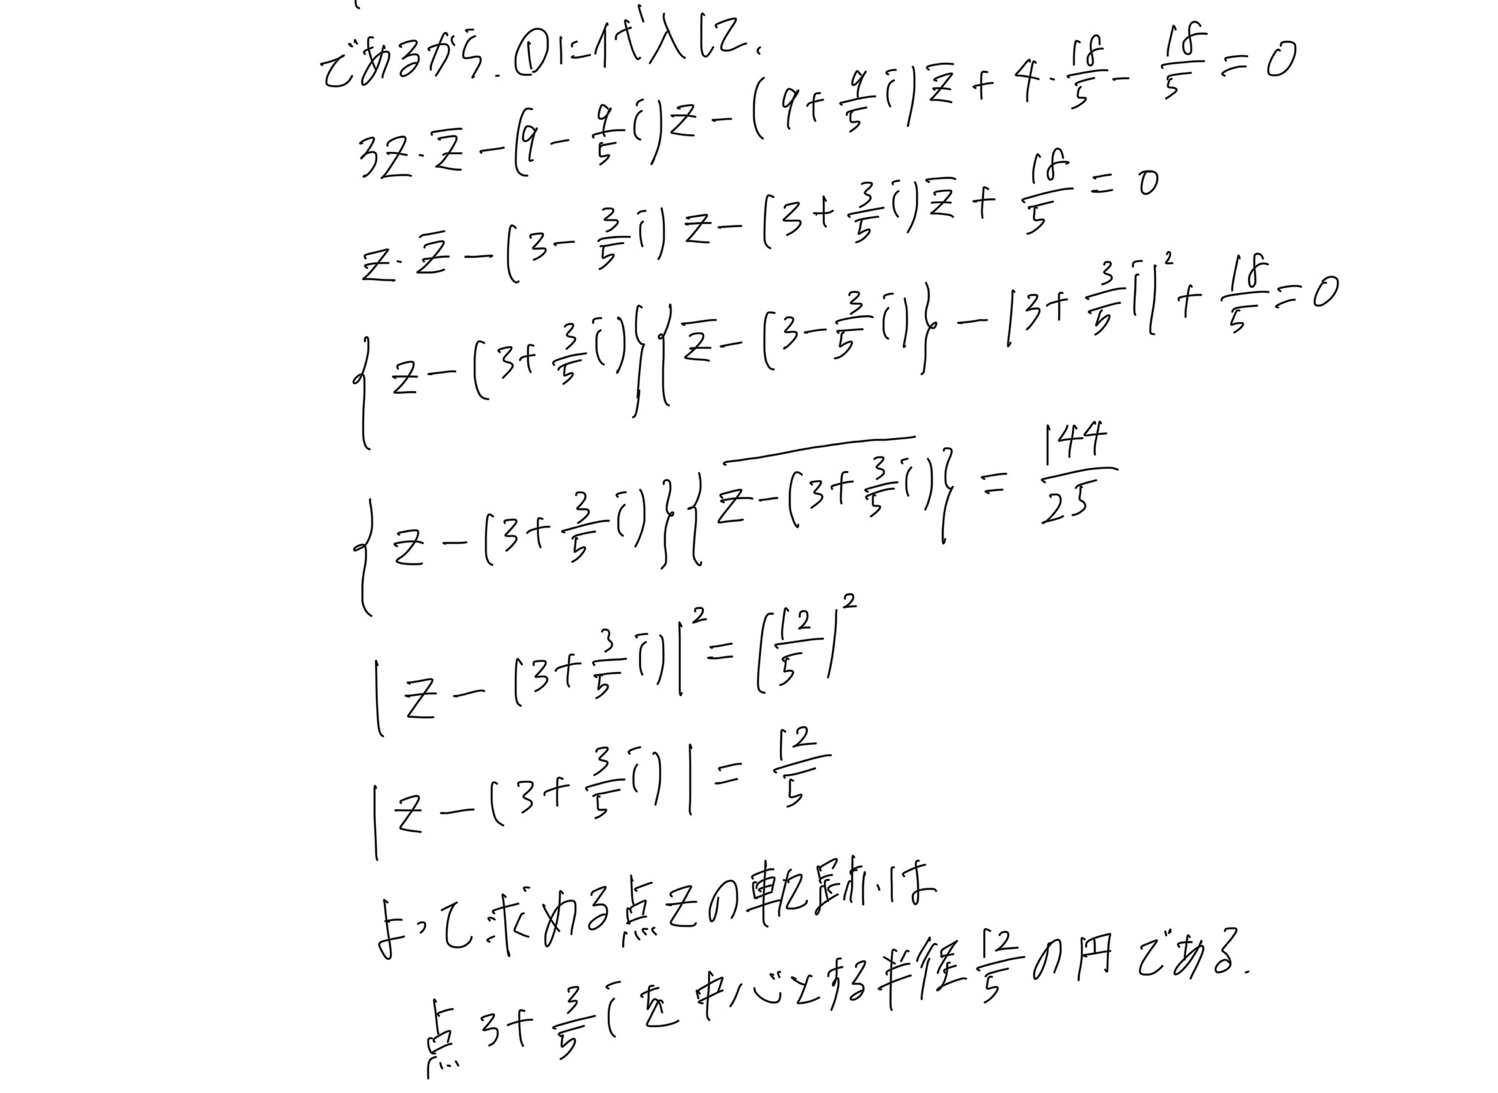 であるから、①に代入して、
3z・z̅ −(9 − 9/5 i)z − (9 + 9/5 i)z̅ + 4・18/5 − 18/5 = 0
z・z̅ − (3 − 3/5 i) z − (3 + 3/5 i)z̅ + 18/5 = 0
{z − (3 + 3/5 i)}{z̅ − (3 − 3/5 i)} − |3 + 3/5 i|² + 18/5 = 0
{z − (3 + 3/5 i)}{\overline{z − (3 + 3/5 i)}} = 144/25
|z − (3 + 3/5 i)|² = (12/5)²
|z − (3 + 3/5 i)| = 12/5
よって求める点zの軌跡は
点 3 + 3/5 i を中心とする半径 12/5 の円である.